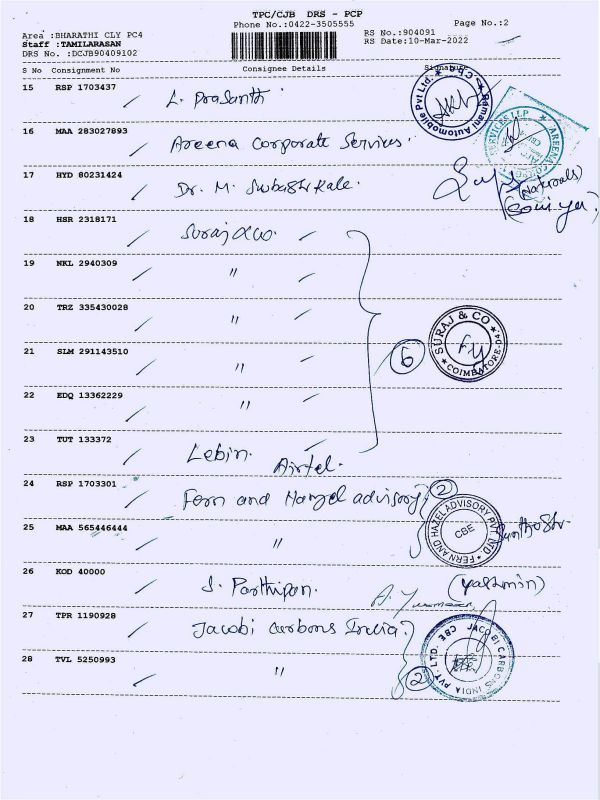 TPC/CJB DRS - PCP
Phone No.:0422-3505555
Page No.:2
Area :BHARATHI CLY PC4
Staff :TAMILARASAN
DRS No. :DCJB90409102
RS No.:904091
RS Date:10-Mar-2022
S No Consignment No Consignee Details Signature
15 RSP 1703437
L. Prasanth
Ramani Automobile Pvt Ltd.
16 MAA 283027893
Areena Corporate Services.
SERVICES LLP AREENA
17 HYD 80231424
Dr. M.
(Naturals)
18 HSR 2318171
19 NKL 2940309
"
20 TRZ 335430028
"
SURAJ & CO
COIMBATORE
21 SLM 291143510
"
6
22 EDQ 13362229
"
23 TUT 133372
Lebin. Airtel.
24 RSP 1703301
Fern and Hazel advisory
2
FERN AND HAZEL ADVISORY PVT LTD
CBE
25 MAA 565446444
"
26 KOD 40000
J. Parthipan.
(yasmin)
27 TPR 1190928
Jacobi Carbons India.
JACOBI CARBONS INDIA PVT. LTD. CBE
28 TVL 5250993
"
2